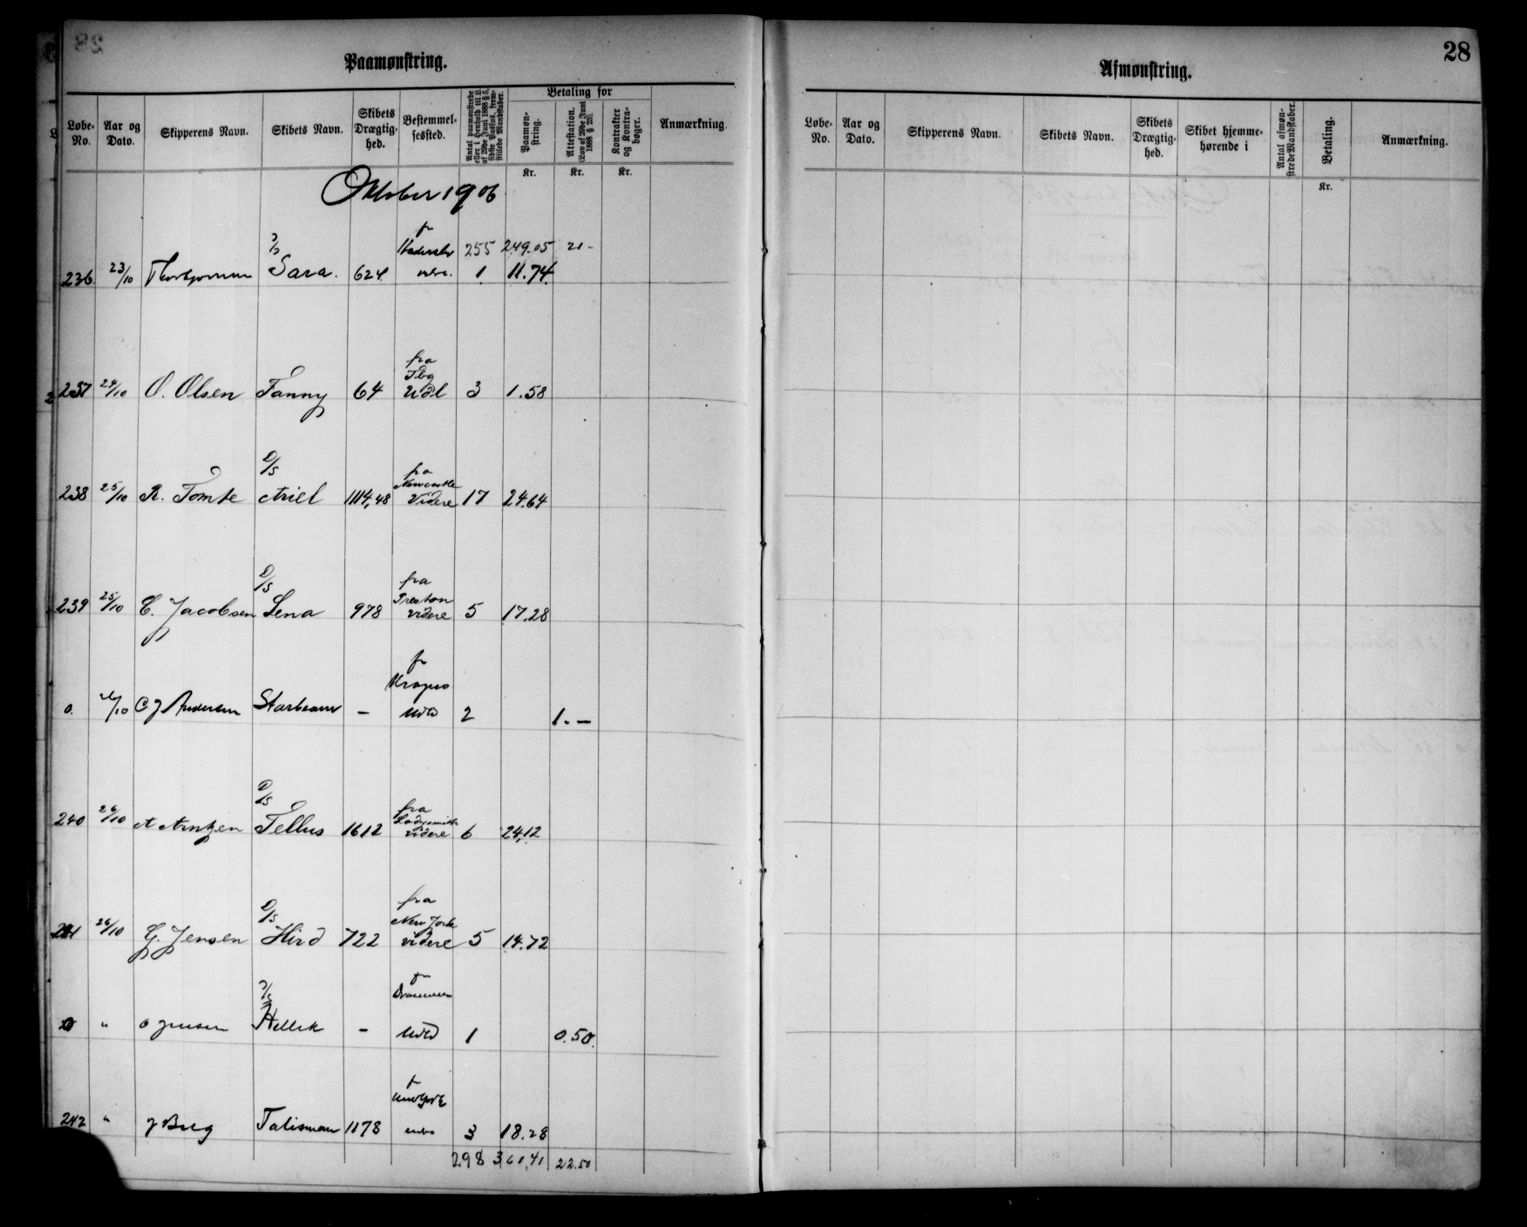 Paamønstring.
Løbe-No. Aar og Dato. Skipperens Navn. Skibets Navn. Skibets Drægtighed. Bestemmelsessted. Betaling for Paamønstring. Attestation. (Lov af 29de Juni 1888 § 28). Kontrakter og Kontrabøger. Anmærkning.
Kr. Kr. Kr.
Oktober 1906
255 249.05 21-
236 23/10 Sara. 624 1 11.74
fra
237 24/10 O. Olsen Fanny 64 Udl 3 1.58
D/S fra Newcastle
238 25/10 R. Tomte Ariel 1114,48 Videre 17 24.64
D/S fra Preston
239 25/10 C. Jacobsen Lena 978 videre 5 17.28
fr Kragerø
0. /10 C J Andersen - Udld 2 1.-
D/S fra
240 26/10 Tellus 1612 videre 6 24,12
D/S fra New York
241 26/10 G. Jensen Hird 722 videre 5 14.72
fr Drammen
0 " - Udld 1 0.50.
242 " J Berg Talisman 1178 3 18.28
298 361,41 22.50
28
Afmønstring.
Løbe-No. Aar og Dato. Skipperens Navn. Skibets Navn. Skibets Drægtighed. Skibet hjemmehørende i Antal afmønstrede Mandskaber. Betaling. Anmærkning.
Kr.